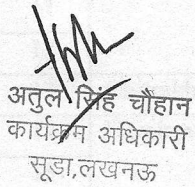 अतुल सिंह चौहान
कार्यक्रम अधिकारी
सूडा,लखनऊ